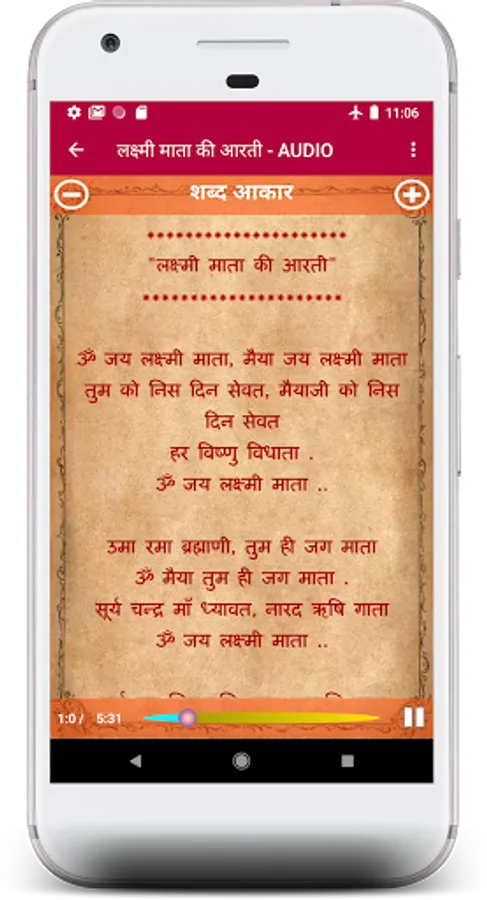 11:06
लक्ष्मी माता की आरती - AUDIO
शब्द आकार
"लक्ष्मी माता की आरती"
ॐ जय लक्ष्मी माता, मैया जय लक्ष्मी माता
तुम को निस दिन सेवत, मैयाजी को निस
दिन सेवत
हर विष्णु विधाता .
ॐ जय लक्ष्मी माता ..
उमा रमा ब्रह्माणी, तुम ही जग माता
ॐ मैया तुम ही जग माता .
सूर्य चन्द्र माँ ध्यावत, नारद ऋषि गाता
ॐ जय लक्ष्मी माता ..
1:0 / 5:31